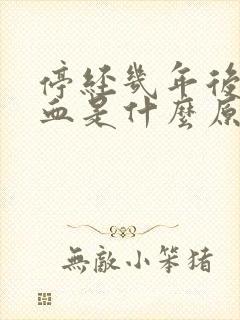 停經幾年後
血是什麼原
無敵小笨猪